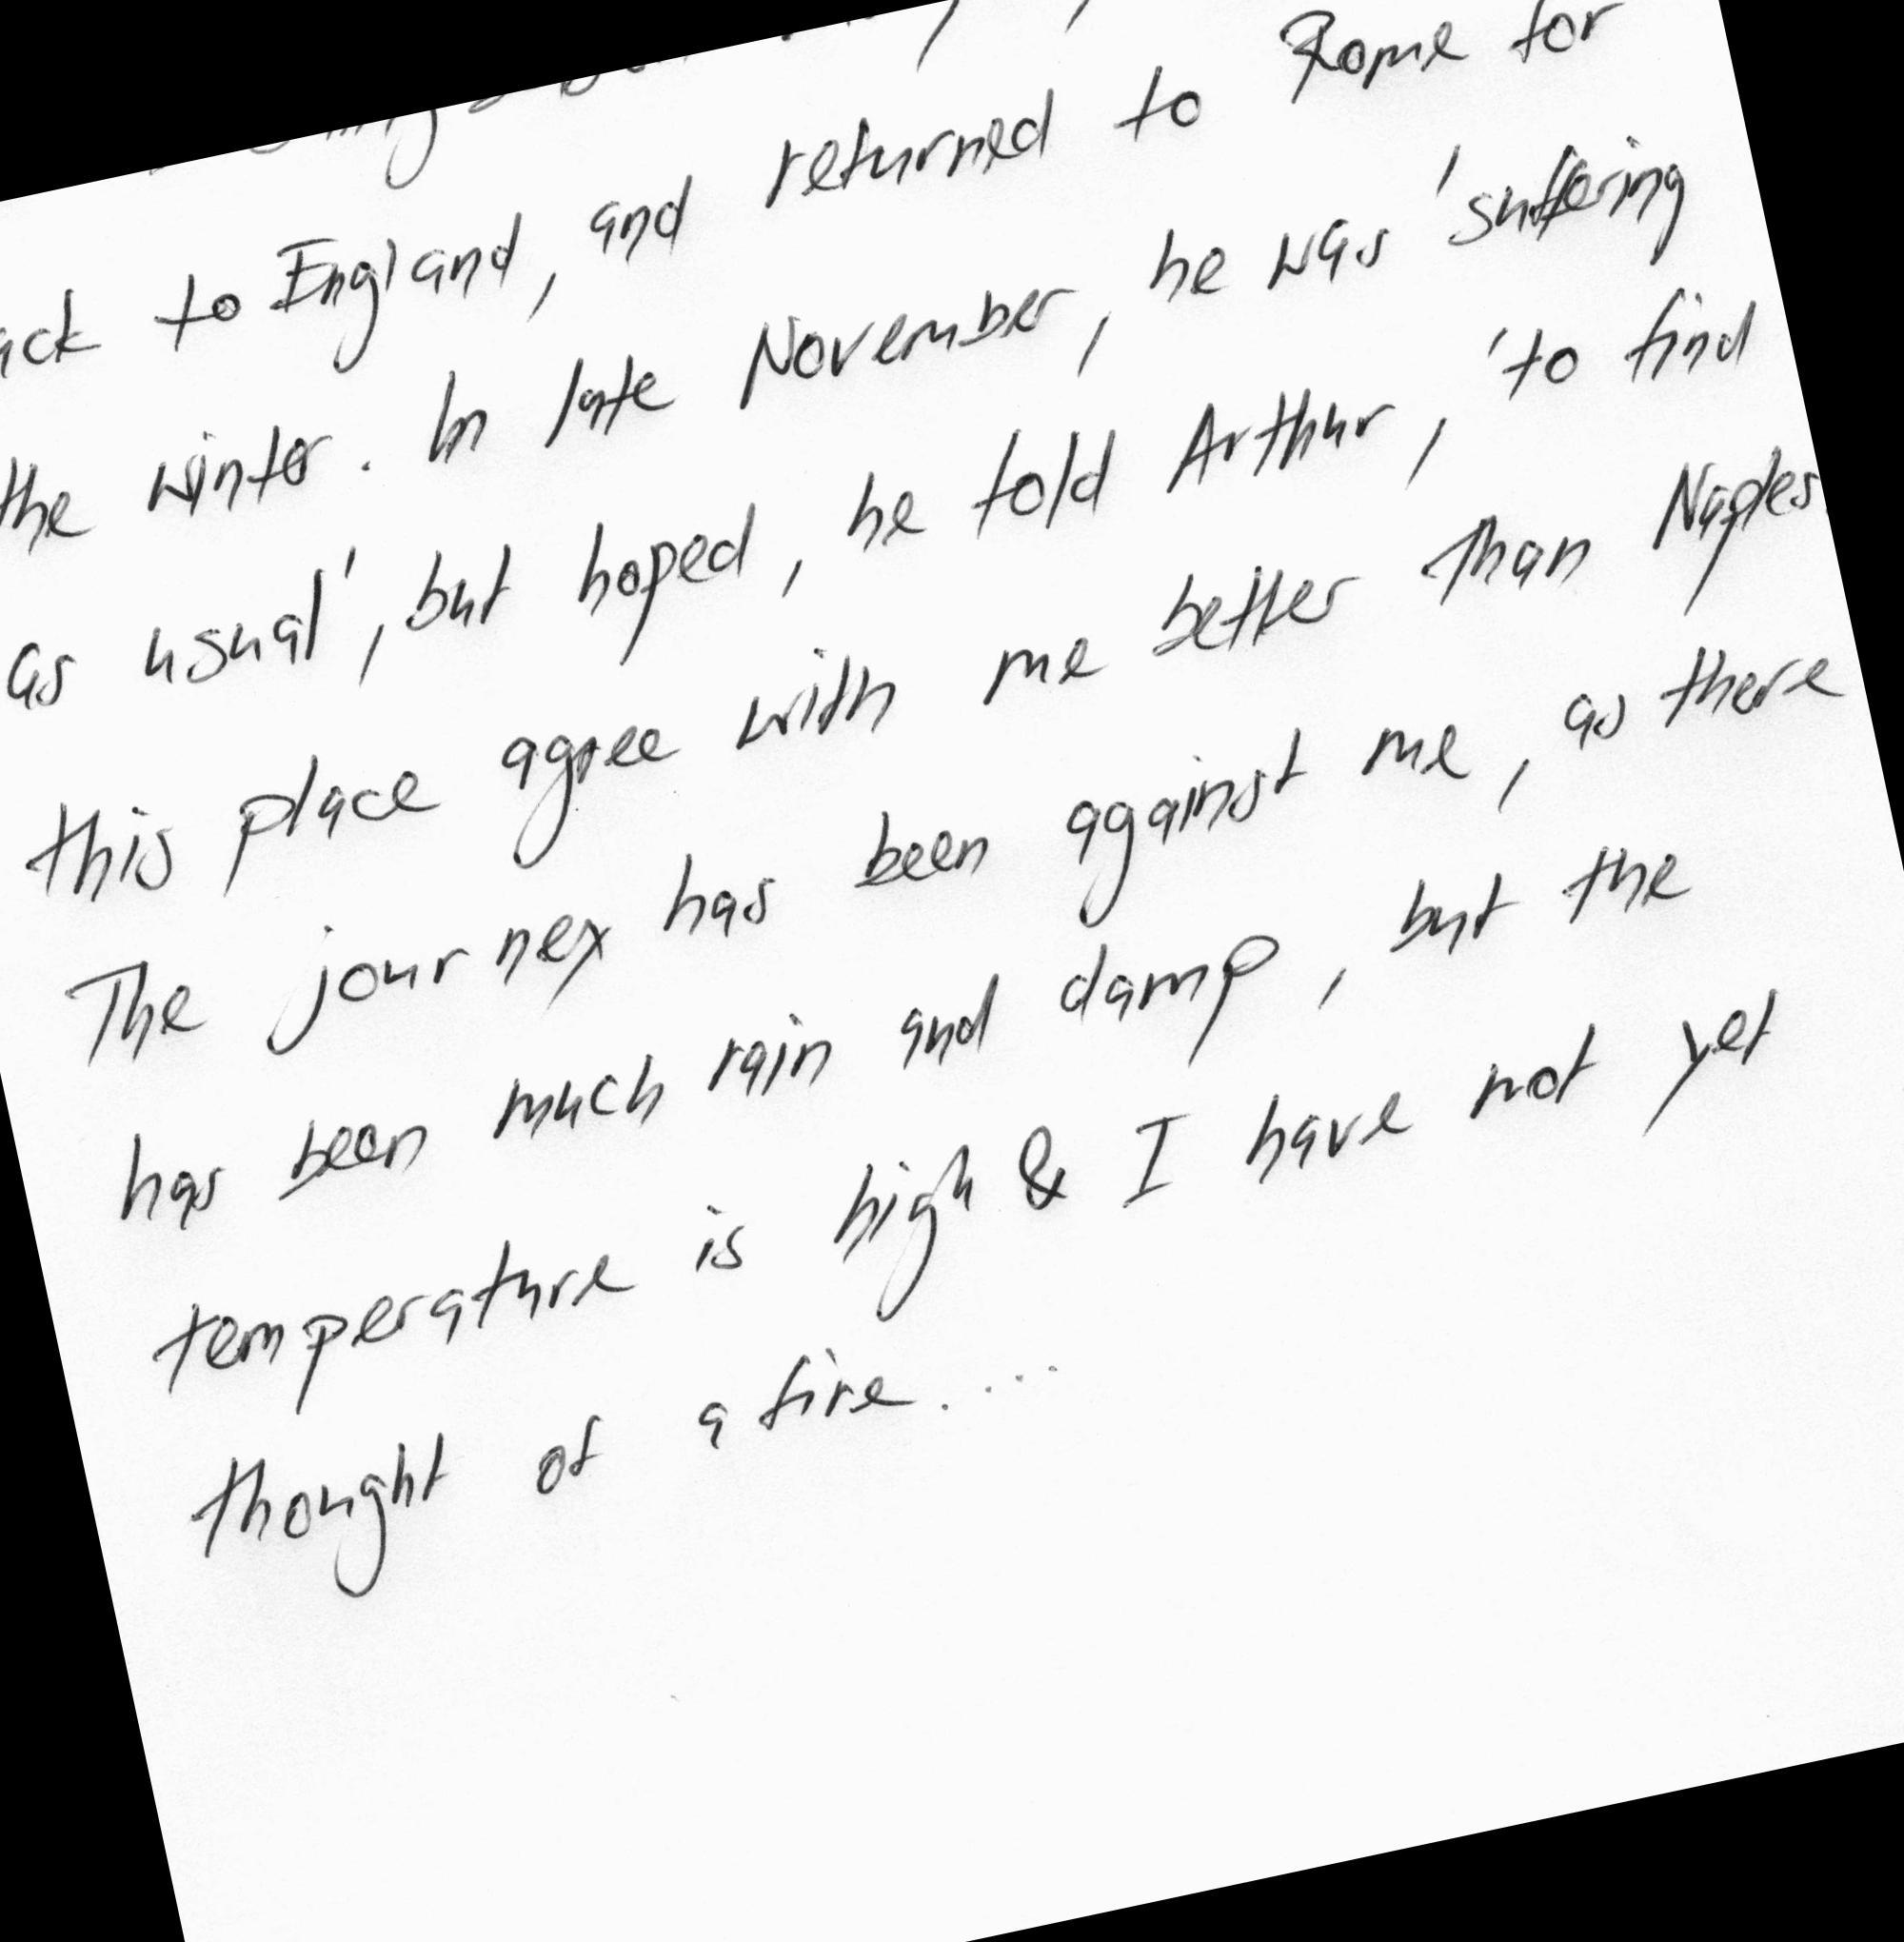 to England, and returned to Rome for
the winter. In late November, he was 'suffering
as usual', but hoped, he told Arthur, 'to find
this place agree with me better than Naples.
The journey has been against me, as there
has been much rain and damp, but the
temperature is high & I have not yet
thought of a fire....